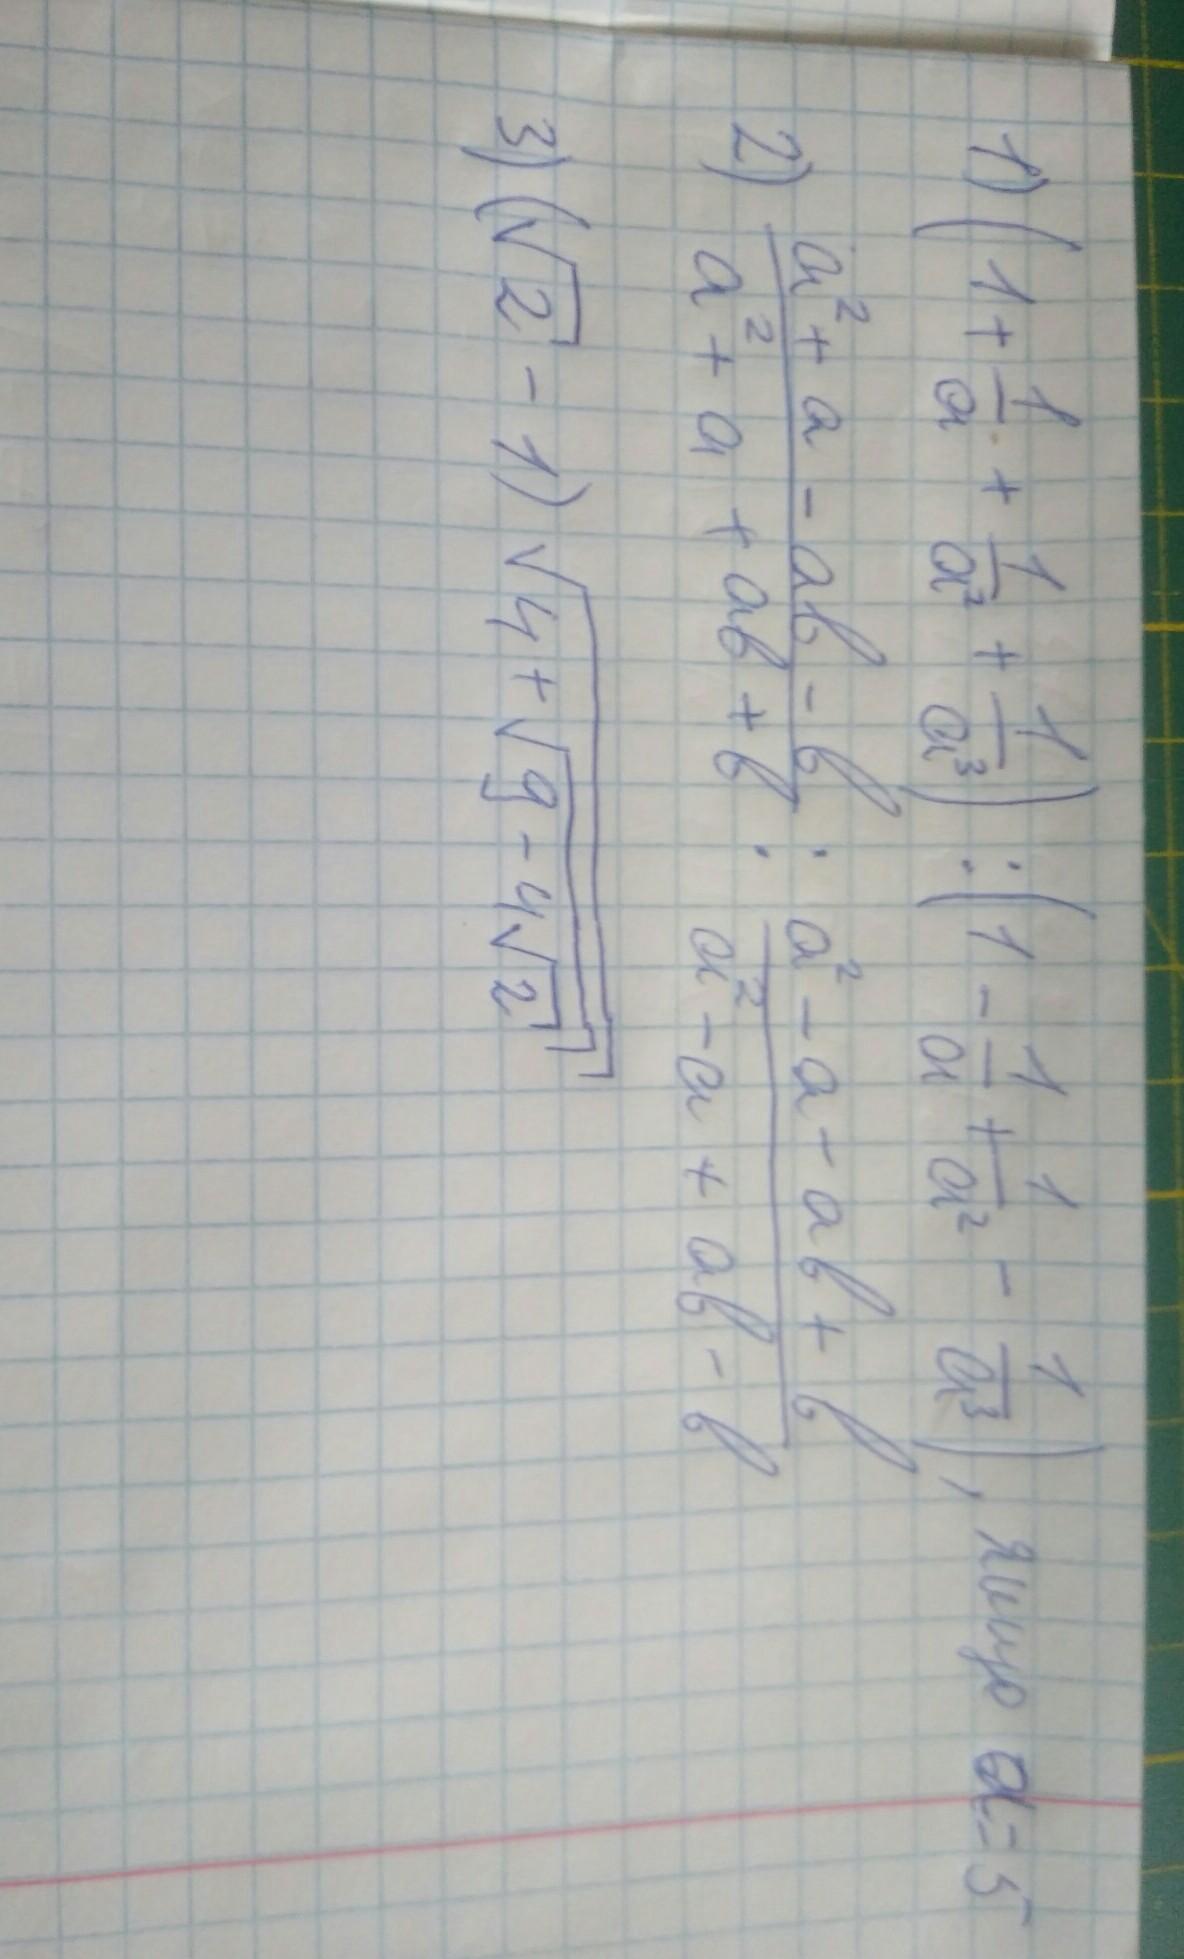 1) (1 + 1/a + 1/a² + 1/a³) : (1 - 1/a + 1/a² - 1/a³), якщо a = 5
2) (a² + a - ab - b)/(a² + a + ab + b) : (a² - a - ab + b)/(a² - a + ab - b)
3) (√2 - 1) √(4 + √(9 - 4√2))